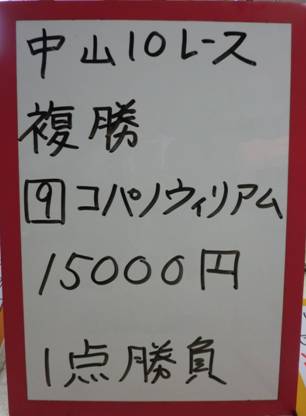 中山10レース
複勝
9 コパノウィリアム
15000円
1点勝負